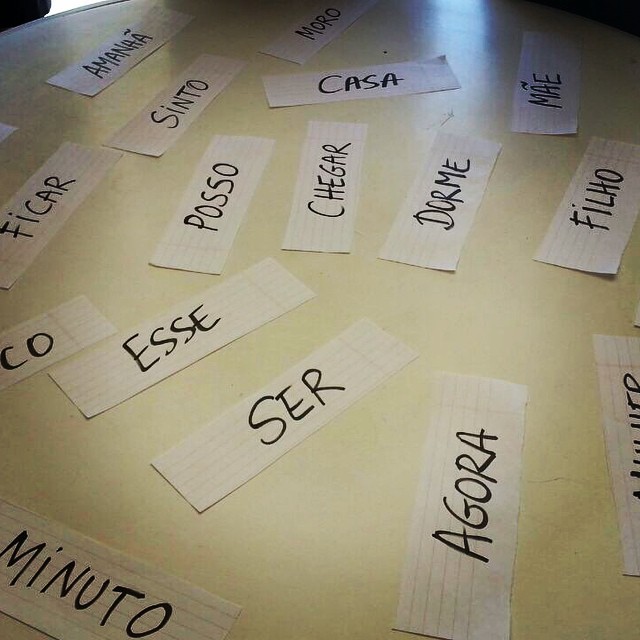 AMANHÃ
MORO
SINTO
CASA
MÃE
FICAR
POSSO
CHEGAR
DORME
FILHO
CO
ESSE
SER
AGORA
MINUTO